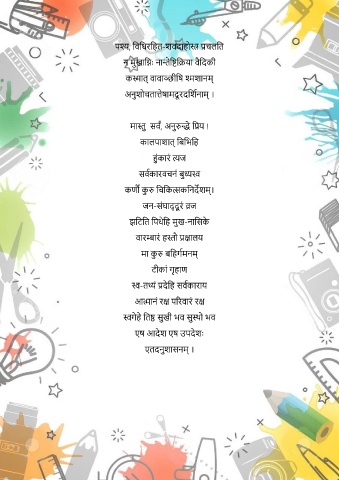 पश्य, विधिरहित-शवदाहोस्त्र प्रचलति
न मुखाग्निः नान्तेष्टिक्रिया वैदिकी
कस्मात् वावाञ्छीषि श्मशानम्
अनुशोचतात्तेषामदूरदर्शिनाम् ।
मास्तु सर्वं, अनुरुन्द्धे प्रिय !
कालपाशात् बिभिहि
हुंकारं त्यज
सर्वकारवचनं बुध्यस्व
कर्णौ कुरु चिकित्सकनिर्देशम्।
जन-संघाद्दूरं व्रज
झटिति पिधेहि मुख-नासिके
वारम्बारं हस्तौ प्रक्षालय
मा कुरु बहिर्गमनम्
टीकां गृहाण
स्व-तथ्यं प्रदेहि सर्वकाराय
आत्मानं रक्ष परिवारं रक्ष
स्वगेहे तिष्ठ सुखी भव सुस्थो भव
एष आदेश एष उपदेशः
एतदनुशासनम् ।